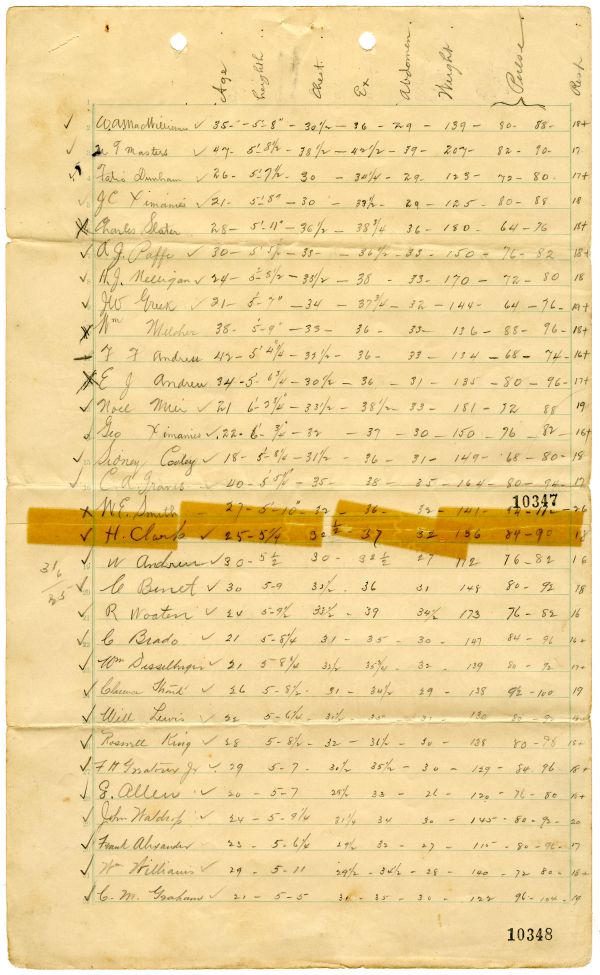 Age Heighth Chest Ex Abdomen Weight Pulse Resp
W A MacWilliams ✓ 35 - 5'-8" - 30 1/2 - 36 - 29 - 139 - 80 - 88 - 18+
T Masters ✓ 47 - 5'-8 1/2 - 38 1/2 - 42 1/2 - 39 - 207 - 82 - 90 - 17
Dunham ✓ 26 - 5'-7 1/2 - 30 - 34 1/4 - 29 - 123 - 72 - 80 - 17+
J C Ximanies ✓ 21 - 5'-8" - 30 - 33 1/2 - 29 - 125 - 80 - 88 18
Charles Slater 28 - 5'-11" - 36 1/2 - 38 3/4 - 36 - 180 - 64 - 76 18+
A. J. Paffe ✓ 30 - 33 - 36 1/2 - 33 - 150 - 76 - 82 18+
H. J. Milligan ✓ 24 - 5'-8 1/2 - 33 1/2 - 38 - 33 - 170 - 72 - 80 18
J W Greek ✓ 21 - 5'-7" - 34 - 37 3/4 - 32 - 144 - 64 - 76 - 19+
Wm Melcher 38 - 5'-9" - 33 - 36 - 33 - 136 - 88 - 96 - 18+
F F Andreu ✓ 42 - 5' 4 3/4 - 33 1/2 - 36 - 33 - 134 - 68 - 74 - 16+
E J Andreu 34 - 5 - 6 3/4 - 30 1/2 - 36 - 31 - 135 - 80 - 96 - 17+
Noel Mier ✓ 21 - 33 1/2 - 38 1/2 - 33 - 181 - 72 88 19
Geo Ximanies ✓ 22 - 32 - 37 - 30 - 150 - 76 - 82 - 16+
Sidney Cooley ✓ 18 - 5'-8 3/4 - 31 1/2 - 36 - 31 - 149 - 68 - 80 - 18
C. A. Travis ✓ 40 - 35 - 38 - 35 - 164 - 80 - 94 - 17
10347
W. E. Smith 27 - 5 - 10" - 32 - 36 - 32 - 141 - 26
H. Clark ✓ 25 - 5 3/4 - 32 1/2 - 37 32 - 136 84 - 90 - 18
W Andreu ✓ 30 - 5 1/2 30 - 32 1/2 - 27 - 112 76 - 82 16
C Benet ✓ 30 5-9 36 31 148 80 - 92 18
R Wooten ✓ 24 5-9 1/2 33 1/2 - 39 34 1/2 173 76 - 82 16
C Brado ✓ 21 5-8 3/4 31 - 35 - 30 - 147 84 - 96 16+
Wm Disselbriger ✓ 21 5-8 3/4 32 1/2 35 3/4 - 32 - 139 80 - 92 - 17+
✓ 26 5-8 1/2 - 31 - 34 1/2 - 29 - 138 92 - 100 19
Will Lewis 5-6 1/4 130
Rosmell King ✓ 28 5-8 1/2 - 32 - 36 1/2 - 30 - 138 80 - 98 18+
Jr ✓ 29 5-7 - 30 1/2 35 1/2 - 30 - 129 - 84 - 96 - 18+
E. Allen ✓ 20 - 5-7 33 - 26 - 120 - 76 - 80
John Waldrop ✓ 24 - 5-9 1/4 31 1/4 34 30 - 145 - 80 - 92 - 20
Frank Alexander ✓ 23 - 5-6 1/4 29 1/2 32 - 27 - 80 - 96 - 17
Wm Williams ✓ 29 - 5-11 29 1/2 - 34 1/2 - 28 - 140 - 72 80 - 18+
C. M. Graham ✓ 21 - 5-5 31 - 35 - 30 - 122 96 - 104 - 19
10348